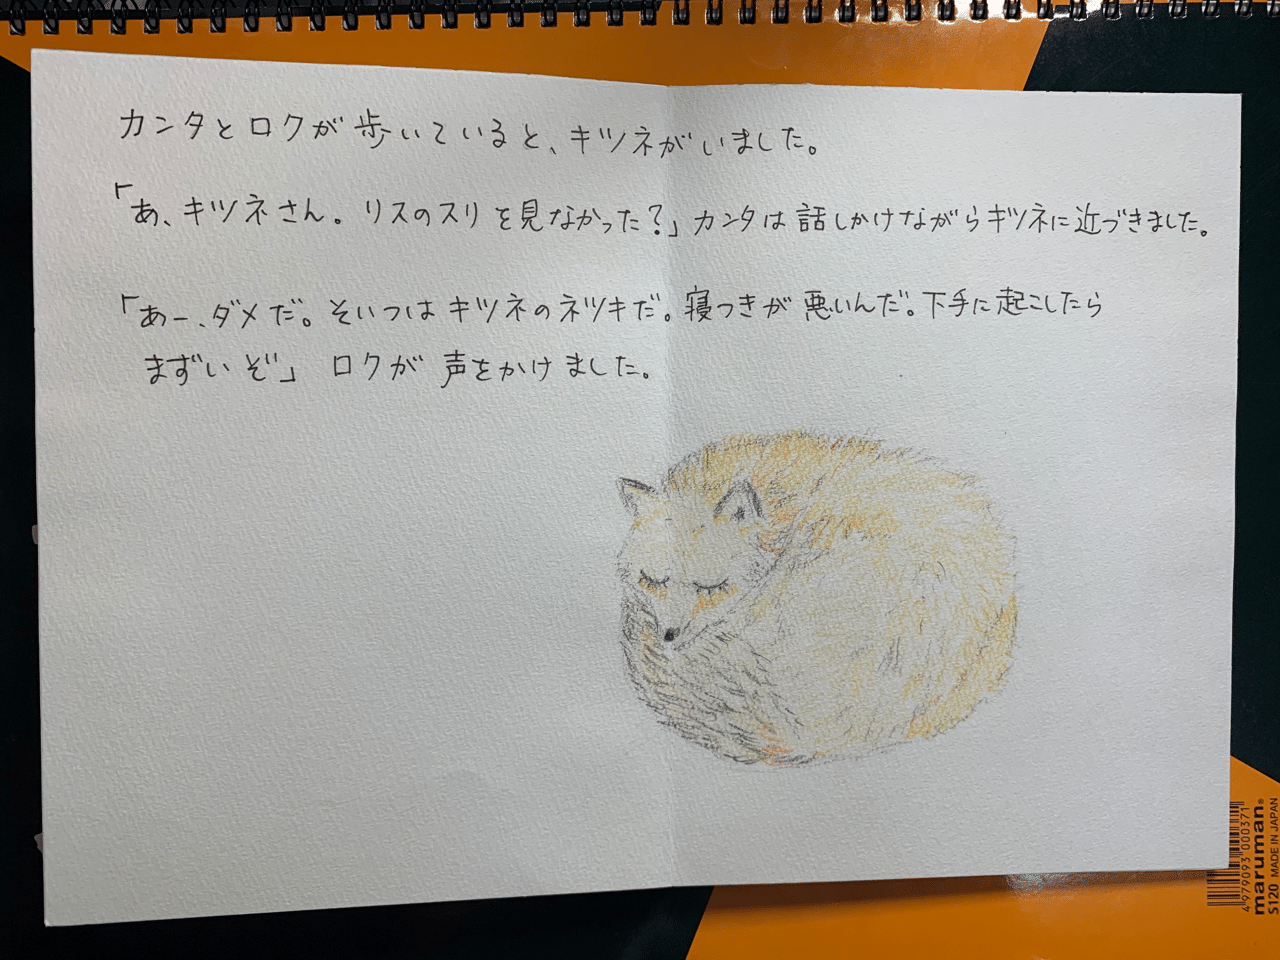 カンタとロクが歩いていると、キツネがいました。
「あ、キツネさん。リスのスリを見なかった？」カンタは話しかけながらキツネに近づきました。
「あー、ダメだ。そいつはキツネのネツキだ。寝つきが悪いんだ。下手に起こしたら
まずいぞ」 ロクが声をかけました。
4979093 000371
maruman®
S120 MADE IN JAPAN